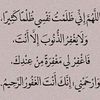 اللَّهُمَّ إِنِّي ظَلَمْتُ نَفْسِي ظُلْمًا كَثِيرًا،
وَلَا يَغْفِرُ الذُّنُوبَ إِلَّا أَنْتَ،
فَاغْفِرْ لِي مَغْفِرَةً مِنْ عِنْدِكَ،
وَارْحَمْنِي، إِنَّكَ أَنْتَ الغَفُورُ الرَّحِيمُ.